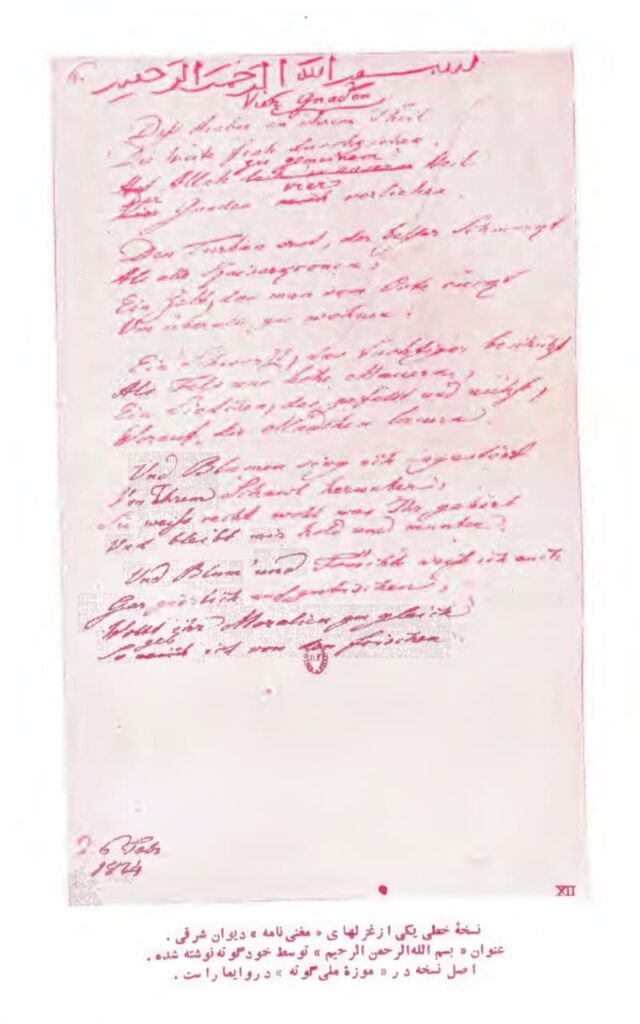 بسم الله الرحمن الرحيم
Vier Gnaden
Dass Araber an ihrem Theil
Die Weite froh durchziehen,
Hat Allah zu gemeinem Heil
Der Gnaden vier verliehen.
Den Turban erst, der besser schmückt
Als alle Kaiserkronen;
Ein Zelt, das man vom Orte rückt
Um überall zu wohnen;
Ein Schwerdt, das tüchtiger beschützt
Als Fels und hohe Mauern;
Ein Liedchen, das gefällt und nützt,
Worauf die Mädchen lauern.
Und Blumen sing ich ungestört
Von Ihrem Schawl herunter,
Sie weiss recht wohl was Ihr gehört
Und bleibt mir hold und munter.
Und Blum' und Früchte weiss ich euch
Gar zierlich aufzutischen,
Wollt ihr Moralien zugleich
So geb ich von den frischen.
6 Febr
1824
XII
نسخهٔ خطی یکی از غزلهای « مغنی نامه » دیوان شرقی .
عنوان « بسم الله الرحمن الرحیم » توسط خود گوته نوشته شده .
اصل نسخه در « موزهٔ ملی گوته » در وایمار است .